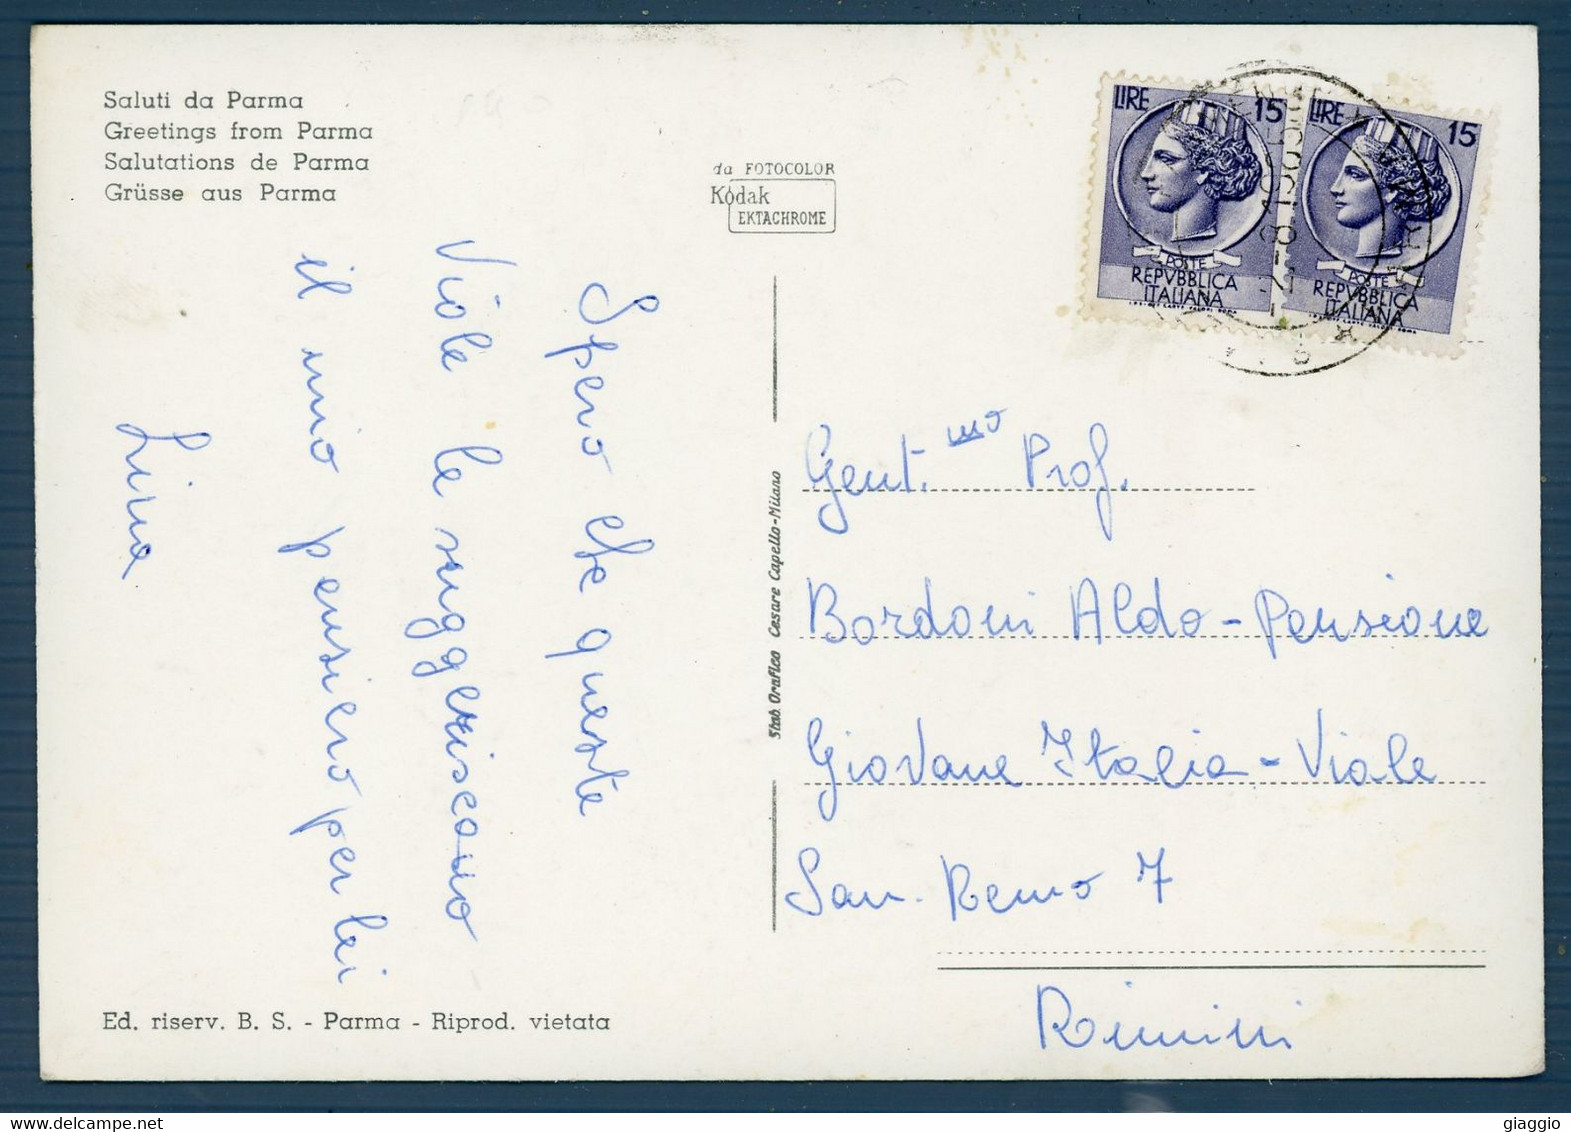 Saluti da Parma
Greetings from Parma
Salutations de Parma
Grüsse aus Parma
da FOTOCOLOR
Kodak
EKTACHROME
LIRE 15
POSTE
REPVBBLICA
ITALIANA
LIRE 15
POSTE
REPVBBLICA
ITALIANA
Spero che queste
Viole le suggeriscano
il mio pensiero per lei
Lina
Stab. Grafico Cesare Capello-Milano
Gent.mo Prof.
Bordoni Aldo - Pensione
Giovane Italia - Viale
San. Remo 7
Rimini
Ed. riserv. B. S. - Parma - Riprod. vietata
giaggio